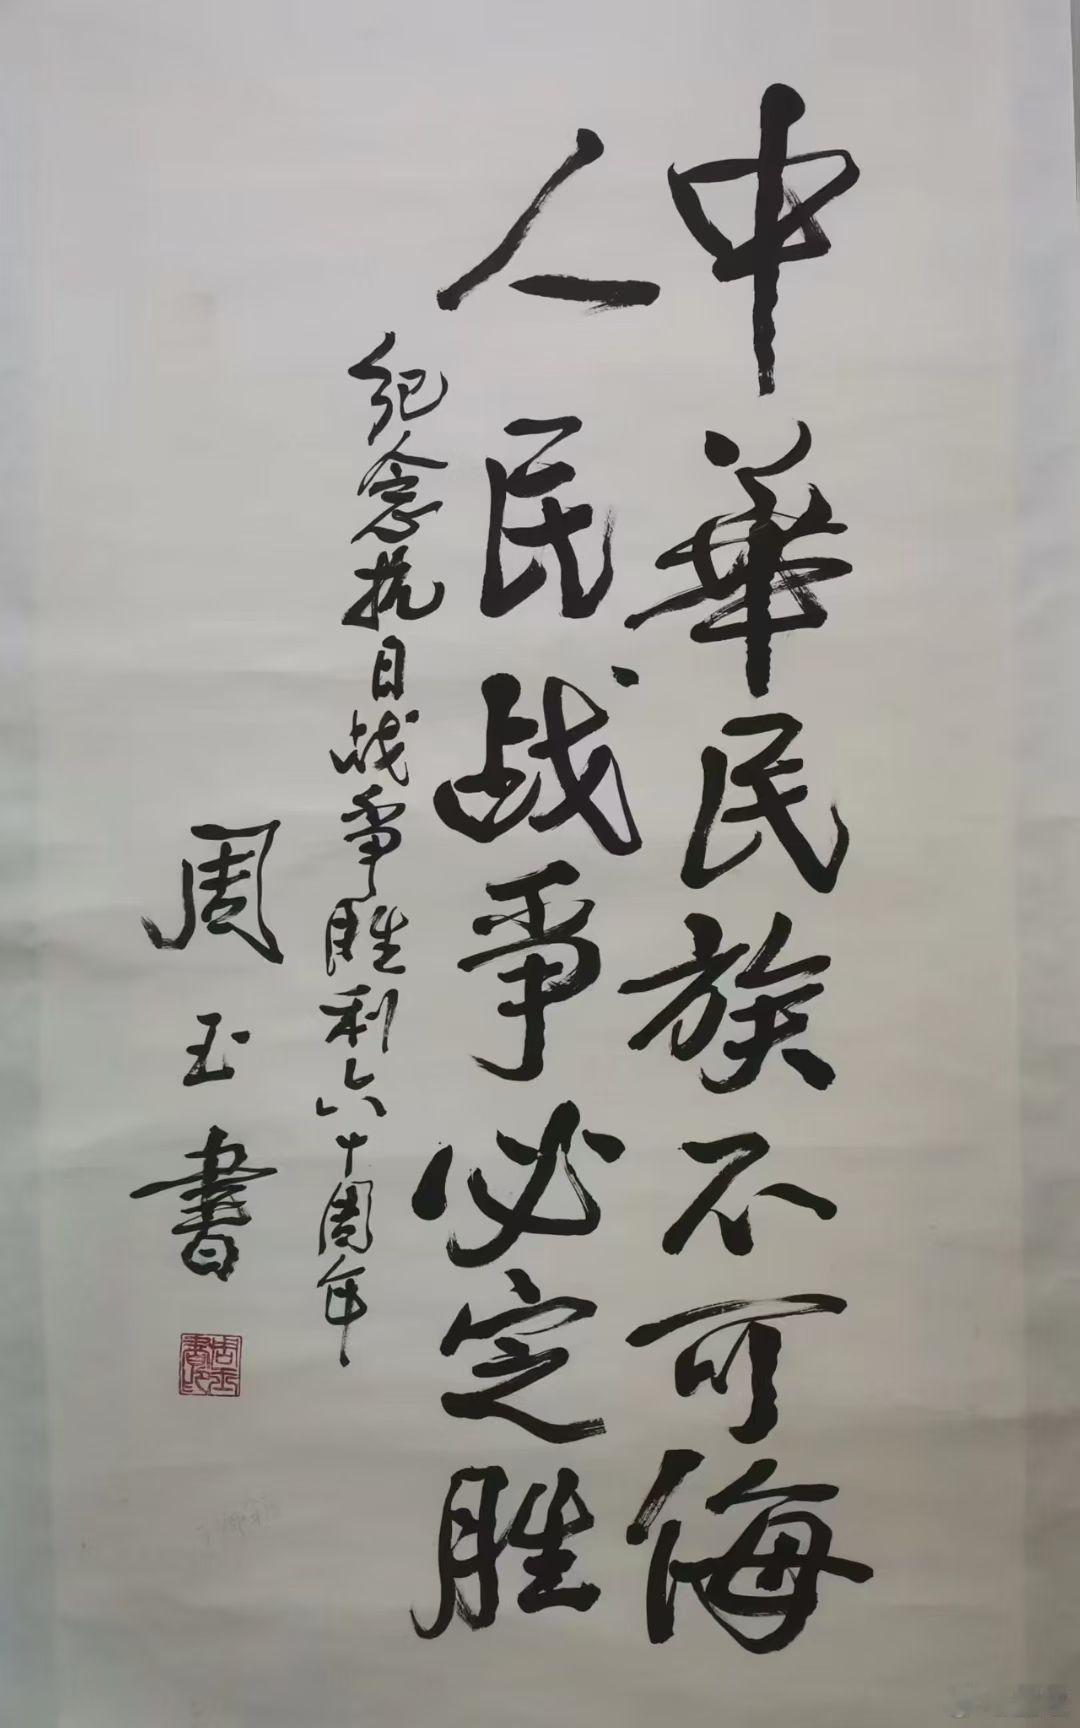 中華民族不可侮
人民战争必定胜
纪念抗日战争胜利六十周年
周玉書
周玉書印